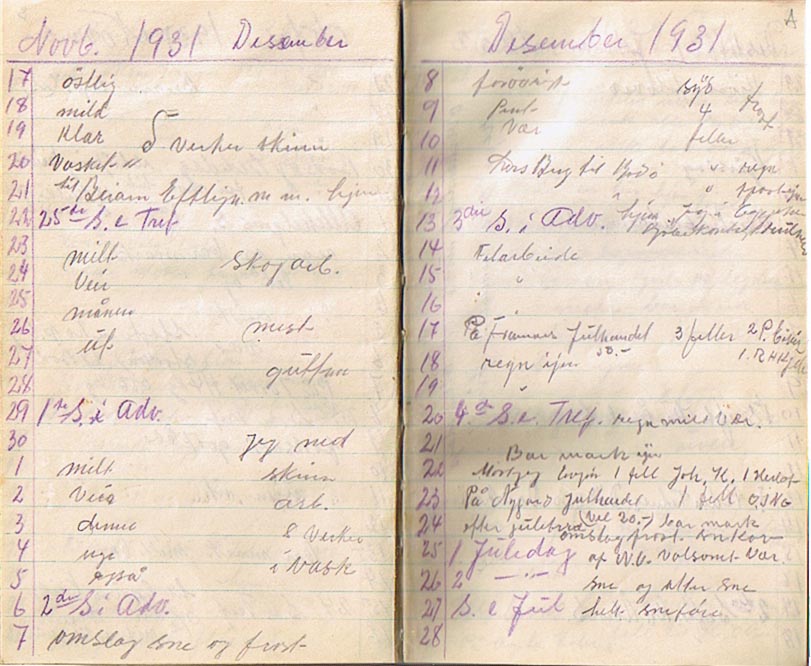 Novb. 1931 Desember
17 östlig
18 mild
19 Klar 5 verker skinn
20 Vasket "
21 til Beiarn Eftlign. m m. hjem
22 25de S. e Tref
23 milt skog arb.
24 Veir
25 månen
26 ut mest
27 guttan
28
29 1ste S. i Adv.
30 Jeg med
1 milt skinn
2 Veir arb.
3 denne 8 Verker
4 uge i vask
5 også
6 2den S i Adv.
7 omslag sne og frost
A
Desember 1931
8 forövrist syd
9 Pent 4 frost
10 Vær feller
11 Turs Brug til Bodö " regn
12 "
13 3die S. i Adv. hjem
14 Felarbeide
15 "
16 "
17 På Furnæs Julhandel 3 feller 2 P.
18 regn igjen 50.- 1. R
19
20 4de S. e. Tref. regn mild Vær.
21 Bar mark igjen
22 1 fell Joh. H. 1
23 På Nygård Julhandel 1 fell O.SNG
24 efter juletræ (Vel 20.-) bar mark
omslag frost
25 1 Juledag af N.V. Valsomt Vær
26 2 -"- sne og atter sne
27 S. e Jul helt sneföre
28